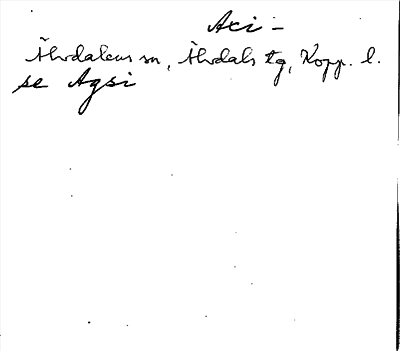 Axi-
Älvdalens sn, Älvdals tg, Kopp. l.
se Agsi